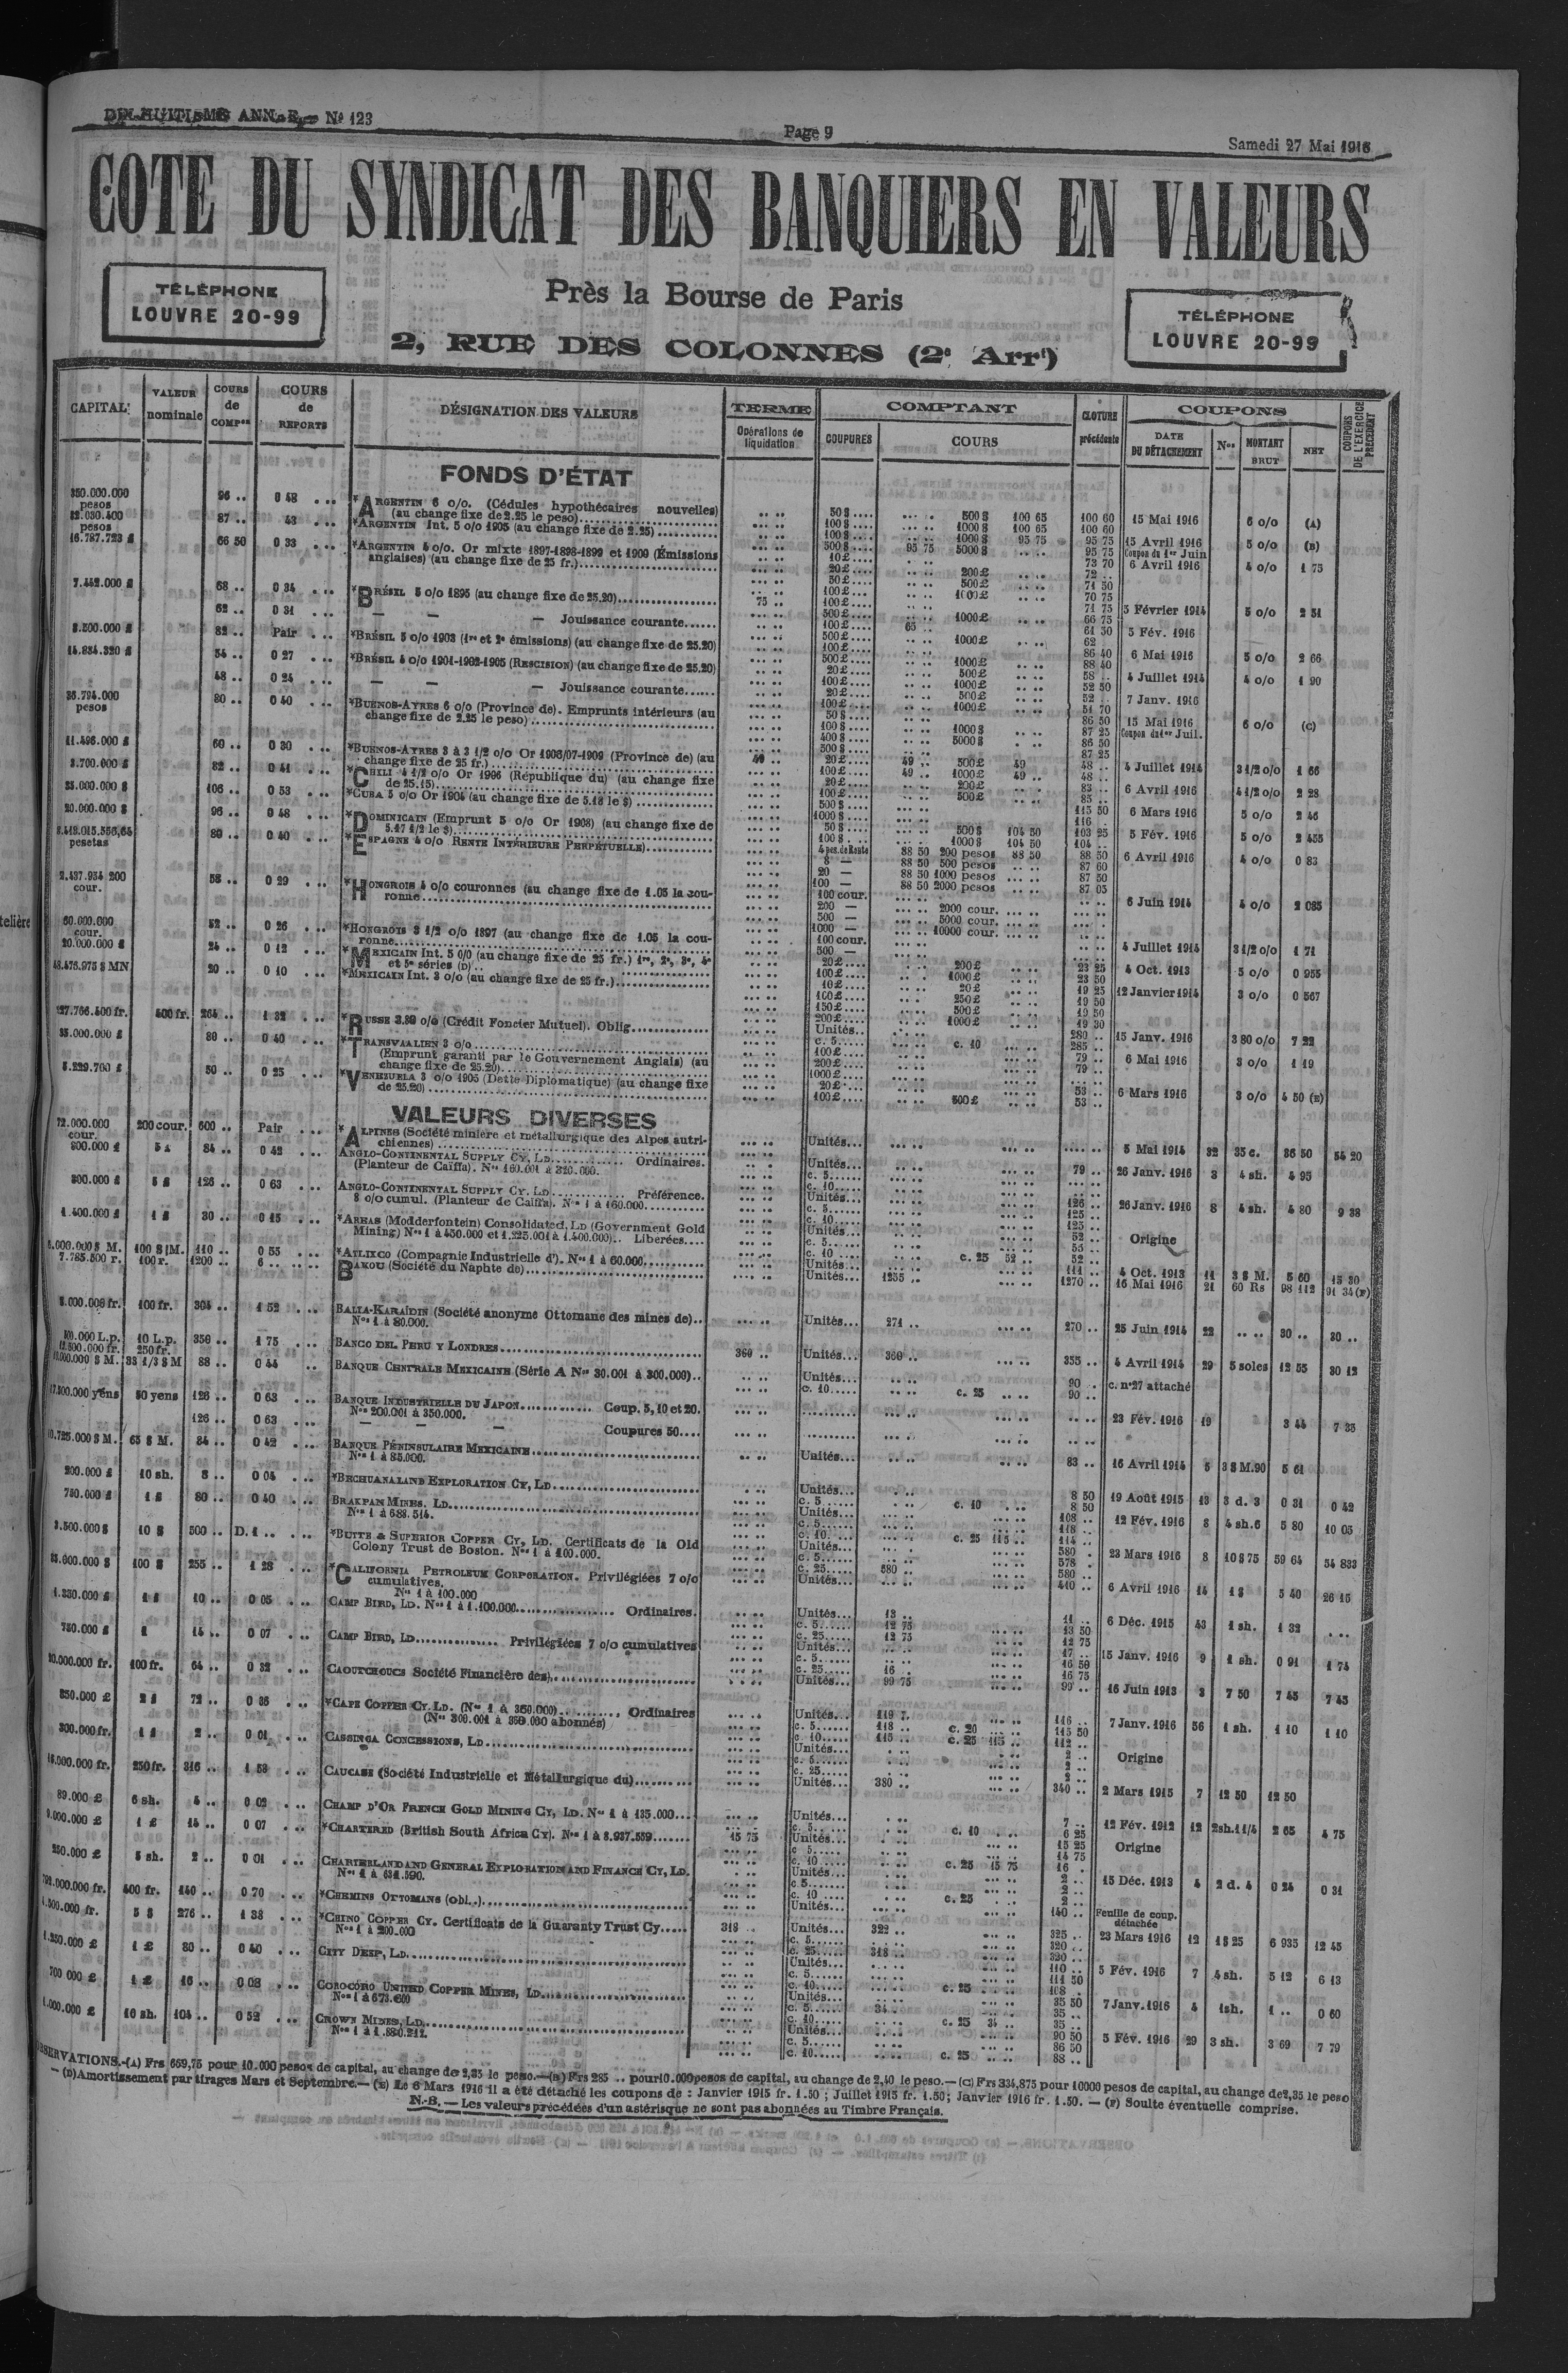 DIX-HUITIÈME ANNÉE, — Nº 123
Page 9
Samedi 27 Mai 1916
COTE DU SYNDICAT DES BANQUIERS EN VALEURS
TÉLÉPHONE
LOUVRE 20-99
Près la Bourse de Paris
2, RUE DES COLONNES (2e Arrt)
TÉLÉPHONE
LOUVRE 20-99
CAPITAL
VALEUR nominale
COURS de COMPon
COURS de REPORTS
DÉSIGNATION DES VALEURS
TERME
Opérations de liquidation
COMPTANT
COUPURES
COURS
CLOTURE précédente
COUPONS
DATE DU DÉTACHEMENT
Nos
MONTANT BRUT
NET
COUPONS DE L'EXERCICE PRÉCÉDENT
FONDS D'ÉTAT
350.000.000 pesos 96 .. 0 48 *ARGENTIN 6 o/o. (Cédules hypothécaires nouvelles) (au change fixe de 2.25 le peso) 50 $ 500 $ 100 65 100 60 15 Mai 1916 6 o/o (A)
100 $ 1000 $ 100 65 100 60
pesos 87 .. 43 *ARGENTIN Int. 5 o/o 1905 (au change fixe de 2.25) 100 $ 1000 $ 95 75 95 75 15 Avril 1916 5 o/o (B)
500 $ 95 75 5000 $ 95 75 Coupon du 1er Juin
16.787.723 £ 66 50 0 33 *ARGENTIN 4 o/o. Or mixte 1897-1898-1899 et 1900 (Émissions anglaises) (au change fixe de 25 fr.) 10 £ 73 70 6 Avril 1916 4 o/o 1 75
20 £ 200 £ 72 ..
50 £ 500 £ 71 50
100 £ 1000 £ 70 75
7.442.000 £ 68 .. 0 34 *BRÉSIL 5 o/o 1895 (au change fixe de 25.20) 75 .. 100 £ 71 75 5 Février 1914 5 o/o 2 51
500 £ 1000 £ 66 75
62 .. 0 31 — — — Jouissance courante 100 £ 65 61 50 5 Fév. 1916
500 £ 1000 £ 62 ..
8.500.000 £ 82 .. Pair *BRÉSIL 5 o/o 1903 (1re et 2e émissions) (au change fixe de 25.20) 100 £ 86 40 6 Mai 1916 5 o/o 2 66
500 £ 1000 £ 88 40
14.834.320 £ 54 .. 0 27 *BRÉSIL 4 o/o 1901-1902-1905 (RESCISION) (au change fixe de 25.20) 20 £ 500 £ 58 .. 4 Juillet 1914 4 o/o 1 90
100 £ 1000 £ 52 50
48 .. 0 24 — — — Jouissance courante 20 £ 500 £ 52 .. 7 Janv. 1916
100 £ 1000 £ 51 70
36.794.000 pesos 80 .. 0 40 *BUENOS-AYRES 6 o/o (Province de). Emprunts intérieurs (au change fixe de 2.25 le peso) 50 $ 86 50 15 Mai 1916 6 o/o (C)
100 $ 1000 $ 87 25 Coupon du 1er Juil.
400 $ 5000 $ 86 50
500 $ 87 25
11.496.000 £ 60 .. 0 30 *BUENOS-AYRES 3 à 3 1/2 o/o Or 1906/07-1909 (Province de) (au change fixe de 25 fr.) 49 .. 20 £ 49 .. 500 £ 49 48 .. 4 Juillet 1914 3 1/2 o/o 1 66
100 £ 49 .. 1000 £ 49 .. 48 ..
3.700.000 £ 82 .. 0 41 *CHILI 4 1/2 o/o Or 1906 (République du) (au change fixe de 25.15) 20 £ 200 £ 83 .. 6 Avril 1916 4 1/2 o/o 2 28
100 £ 500 £ 85 ..
35.000.000 $ 106 .. 0 53 *CUBA 5 o/o Or 1904 (au change fixe de 5.18 le $) 500 $ 115 50 6 Mars 1916 5 o/o 2 46
1000 $ 116 .
20.000.000 $ 96 .. 0 48 *DOMINICAIN (Emprunt 5 o/o Or 1908) (au change fixe de 5.17 1/2 le $) 50 $ 500 $ 104 50 103 25 5 Fév. 1916 5 o/o 2 455
100 $ 1000 $ 104 50 104 ..
pesetas 80 .. 0 40 *ESPAGNE 4 o/o RENTE INTÉRIEURE PERPÉTUELLE) 4 pes. de Rente 88 50 200 pesos 88 50 88 50 6 Avril 1916 4 o/o 0 83
8 — 88 50 500 pesos 87 60
20 — 88 50 1000 pesos 87 50
100 — 88 50 2000 pesos 87 05
2.437.934 200 cour. 58 .. 0 29 *HONGROIS 4 o/o couronnes (au change fixe de 1.05 la couronne 100 cour. 6 Juin 1914 4 o/o 2 085
200 — 2000 cour.
500 — 5000 cour.
1000 — 10000 cour.
60.000.000 cour. 52 .. 0 26 *HONGROIS 3 1/2 o/o 1897 (au change fixe de 1.05 la couronne 100 cour. 4 Juillet 1914 3 1/2 o/o 1 71
500 —
20.000.000 £ 24 .. 0 12 *MEXICAIN Int. 5 o/o (au change fixe de 25 fr.) 1re, 2e, 3e, 4e et 5e séries (D) 20 £ 200 £ 23 25 4 Oct. 1913 5 o/o 0 955
100 £ 1000 £ 23 50
48.476.975 $ MN 20 .. 0 10 *MEXICAIN Int. 3 o/o (au change fixe de 25 fr.) 10 £ 20 £ 19 25 12 Janvier 1914 3 o/o 0 567
100 £ 250 £ 19 50
150 £ 500 £ 19 50
200 £ 1000 £ 19 30
227.766.500 fr. 500 fr. 264 .. 1 32 *RUSSE 3.80 o/o (Crédit Foncier Mutuel). Oblig. Unités 280 .. 15 Janv. 1916 3 80 o/o 7 22
c. 5 c. 10 285 ..
35.000.000 £ 80 .. 0 40 *TRANSVAALIEN 3 o/o (Emprunt garanti par le Gouvernement Anglais) (au change fixe de 25.20) 100 £ 79 .. 6 Mai 1916 3 o/o 1 19
200 £ 79 ..
1000 £
5.229.700 £ 50 .. 0 25 *VENEZUELA 3 o/o 1905 (Dette Diplomatique) (au change fixe de 25.20) 20 £ 53 .. 6 Mars 1916 3 o/o 4 50 (E)
100 £ 500 £ 53 ..
VALEURS DIVERSES
12.000.000 cour. 200 cour. 600 .. Pair *ALPINES (Société minière et métallurgique des Alpes autrichiennes) Unités 5 Mai 1914 32 35 c. 36 50 54 20
800.000 £ 5 £ 84 .. 0 42 ANGLO-CONTINENTAL SUPPLY CY, LD Ordinaires. (Planteur de Caïffa). Nos 160.001 à 320.000. Unités 79 .. 26 Janv. 1916 3 4 sh. 4 95
c. 5
c. 10
800.000 £ 5 £ 126 .. 0 63 ANGLO-CONTINENTAL SUPPLY CY. LD Préférence. 8 o/o cumul. (Planteur de Caïffa). Nos 1 à 160.000 Unités 126 .. 26 Janv. 1916 8 4 sh. 4 80 9 38
c. 5 125 ..
c. 10 125 ..
1.400.000 £ 1 £ 30 .. 0 15 *AREAS (Modderfontein) Consolidated, LD (Government Gold Mining) Nos 1 à 450.000 et 1.225.001 à 1.400.000).. Libérées Unités 52 .. Origine
c. 5 55 ..
c. 10 c. 25 52 .. 52 ..
6.000.000 $ M. 100 $ M. 110 .. 0 55 *ATLIXCO (Compagnie Industrielle d'). Nos 1 à 60.000 Unités 111 .. 4 Oct. 1913 11 3 $ M. 5 60 15 30
7.785.500 r. 100 r. 1200 .. 6 .. BAKOU (Société du Naphte de) Unités 1255 .. 1270 .. 16 Mai 1916 21 60 Rs 98 112 91 34 (F)
8.000.000 fr. 100 fr. 304 .. 1 52 BALIA-KARAÏDIN (Société anonyme Ottomane des mines de).. Nos 1 à 80.000. Unités 271 .. 270 .. 25 Juin 1914 22 30 .. 30 ..
10 L.p. 250 fr. 350 .. 1 75 BANCO DEL PERU Y LONDRES 360 .. Unités 360 .. 355 .. 4 Avril 1914 29 5 soles 12 55 30 12
33 1/3 $ M 88 .. 0 44 BANQUE CENTRALE MEXICAINE (Série A Nos 30.001 à 300.000).. Unités 90 . c. nº27 attaché
c. 10 c. 25 90 ..
17.500.000 yens 50 yens 126 .. 0 63 BANQUE INDUSTRIELLE DU JAPON Coup. 5, 10 et 20. Nos 200.001 à 350.000. 23 Fév. 1916 19 3 44 7 35
126 .. 0 63 — — — Coupures 50
10.725.000 $ M. 65 $ M. 84 .. 0 42 BANQUE PÉNINSULAIRE MEXICAINE Nos 1 à 85.000. Unités 83 .. 16 Avril 1914 5 3 $ M.90 5 61
200.000 £ 10 sh. 8 .. 0 04 *BECHUANALAND EXPLORATION CY, LD Unités 8 50 19 Août 1915 13 3 d. 3 0 31 0 42
c. 5 c. 10 8 50
750.000 £ 1 £ 80 .. 0 40 BRAKPAN MINES, LD Nos 1 à 688.514. Unités 108 .. 12 Fév. 1916 8 4 sh.6 5 80 10 05
c. 5 118 ..
c. 10 c. 25 115 .. 114 ..
3.500.000 $ 10 $ 500 .. D. 1 .. *BUTTE & SUPERIOR COPPER CY, LD. Certificats de la Old Colony Trust de Boston. Nos 1 à 100.000. Unités 580 .. 23 Mars 1916 8 10 $ 75 59 64 54 833
c. 5 578 .
c. 25 580 .. 580 ..
100 $ 255 .. 1 28 *CALIFORNIA PETROLEUM CORPORATION. Privilégiées 7 o/o cumulatives. Nos 1 à 100.000 Unités 410 .. 6 Avril 1916 14 1 $ 5 40 26 16
1.350.000 £ 1 £ 10 .. 0 05 CAMP BIRD, LD. Nos 1 à 1.100.000 Ordinaires. Unités 13 .. 11 .. 6 Déc. 1915 43 1 sh. 1 32
c. 5 12 75 13 50
c. 25 12 75 12 75
750.000 £ 1 14 .. 0 07 CAMP BIRD, LD Privilégiées 7 o/o cumulatives Unités 17 .. 15 Janv. 1916 9 1 sh. 0 91 1 74
c. 5 16 50
c. 25 16 .. 16 75
10.000.000 fr. 100 fr. 64 .. 0 32 CAOUTCHOUCS Société Financière des) Unités 99 75 99 .. 16 Juin 1913 3 7 50 7 45 7 45
850.000 £ 2 £ 72 .. 0 36 *CAPE COPPER CY. LD. (Nos 1 à 350.000) Ordinaires (Nos 300.001 à 350.000 abonnés) Unités 119 116 .. 7 Janv. 1916 56 1 sh. 1 10 1 10
c. 5 118 .. c. 20 115 50
c. 10 115 .. c. 25 115 .. 112 ..
300.000 fr. 1 £ 2 .. 0 01 CASSINGA CONCESSIONS, LD Unités 2 .. Origine
c. 5 2 ..
c. 25 2 ..
18.000.000 fr. 250 fr. 316 .. 1 58 CAUCASE (Société Industrielle et Métallurgique du) Unités 380 .. 340 .. 2 Mars 1915 7 12 50 12 50
89.000 £ 6 sh. 4 .. 0 02 CHAMP D'OR FRENCH GOLD MINING CY, LD. Nos 1 à 135.000 Unités 7 .. 12 Fév. 1912 12 2sh.1 1/4 2 65 4 75
c. 5 c. 10 6 25
9.000.000 £ 1 £ 14 .. 0 07 *CHARTERED (British South Africa Cy). Nos 1 à 8.937.559 15 75 Unités 15 25 Origine
c. 5 14 75
c. 10 c. 25 15 75 16 .
250.000 £ 5 sh. 2 .. 0 01 CHARTERLAND AND GENERAL EXPLORATION AND FINANCE CY, LD. Nos 1 à 631.590. Unités 2 .. 15 Déc. 1913 4 2 d. 4 0 24 0 31
c. 5 2 ..
c. 10 c. 25 2 ..
400 fr. 140 .. 0 70 *CHEMINS OTTOMANS (obl..) Unités 140 .. Feuille de coup. détachée
5 $ 276 .. 1 38 *CHINO COPPER CY. Certificats de la Guaranty Trust Cy Nos 1 à 200.000 318 .. Unités 322 .. 325 .. 23 Mars 1916 12 1 $ 25 6 935 12 45
c. 5 320 ..
c. 25 318 .. 320 ..
1.250.000 £ 1 £ 80 .. 0 40 CITY DEEP, LD Unités 110 .. 5 Fév. 1916 7 4 sh. 5 12 6 13
c. 5 111 50
c. 10 c. 25 108 ..
700 000 £ 1 £ 16 .. 0 08 COROCORO UNITED COPPER MINES, LD Nos 1 à 673.600 Unités 35 50 7 Janv. 1916 4 1sh. 1 .. 0 60
c. 5 34 .. 35 ..
c. 10 c. 25 34 .. 35 ..
1.000.000 £ 10 sh. 104 .. 0 52 CROWN MINES, LD Nos 1 à 1.880.212. Unités 90 50 5 Fév. 1916 29 3 sh. 3 69 7 79
c. 5 86 50
c. 10 c. 25 88 ..
OBSERVATIONS.-(A) Frs 669,75 pour 10.000 pesos de capital, au change de 2,35 le peso.—(B) Frs 285 .. pour 10.000 pesos de capital, au change de 2,40 le peso.— (C) Frs 334,875 pour 10000 pesos de capital, au change de 2,35 le peso
— (D) Amortissement par tirages Mars et Septembre.— (E) Le 6 Mars 1916 il a été détaché les coupons de : Janvier 1915 fr. 1.50 ; Juillet 1915 fr. 1.50; Janvier 1916 fr. 1.50. — (F) Soulte éventuelle comprise.
N.-B. — Les valeurs précédées d'un astérisque ne sont pas abonnées au Timbre Français.